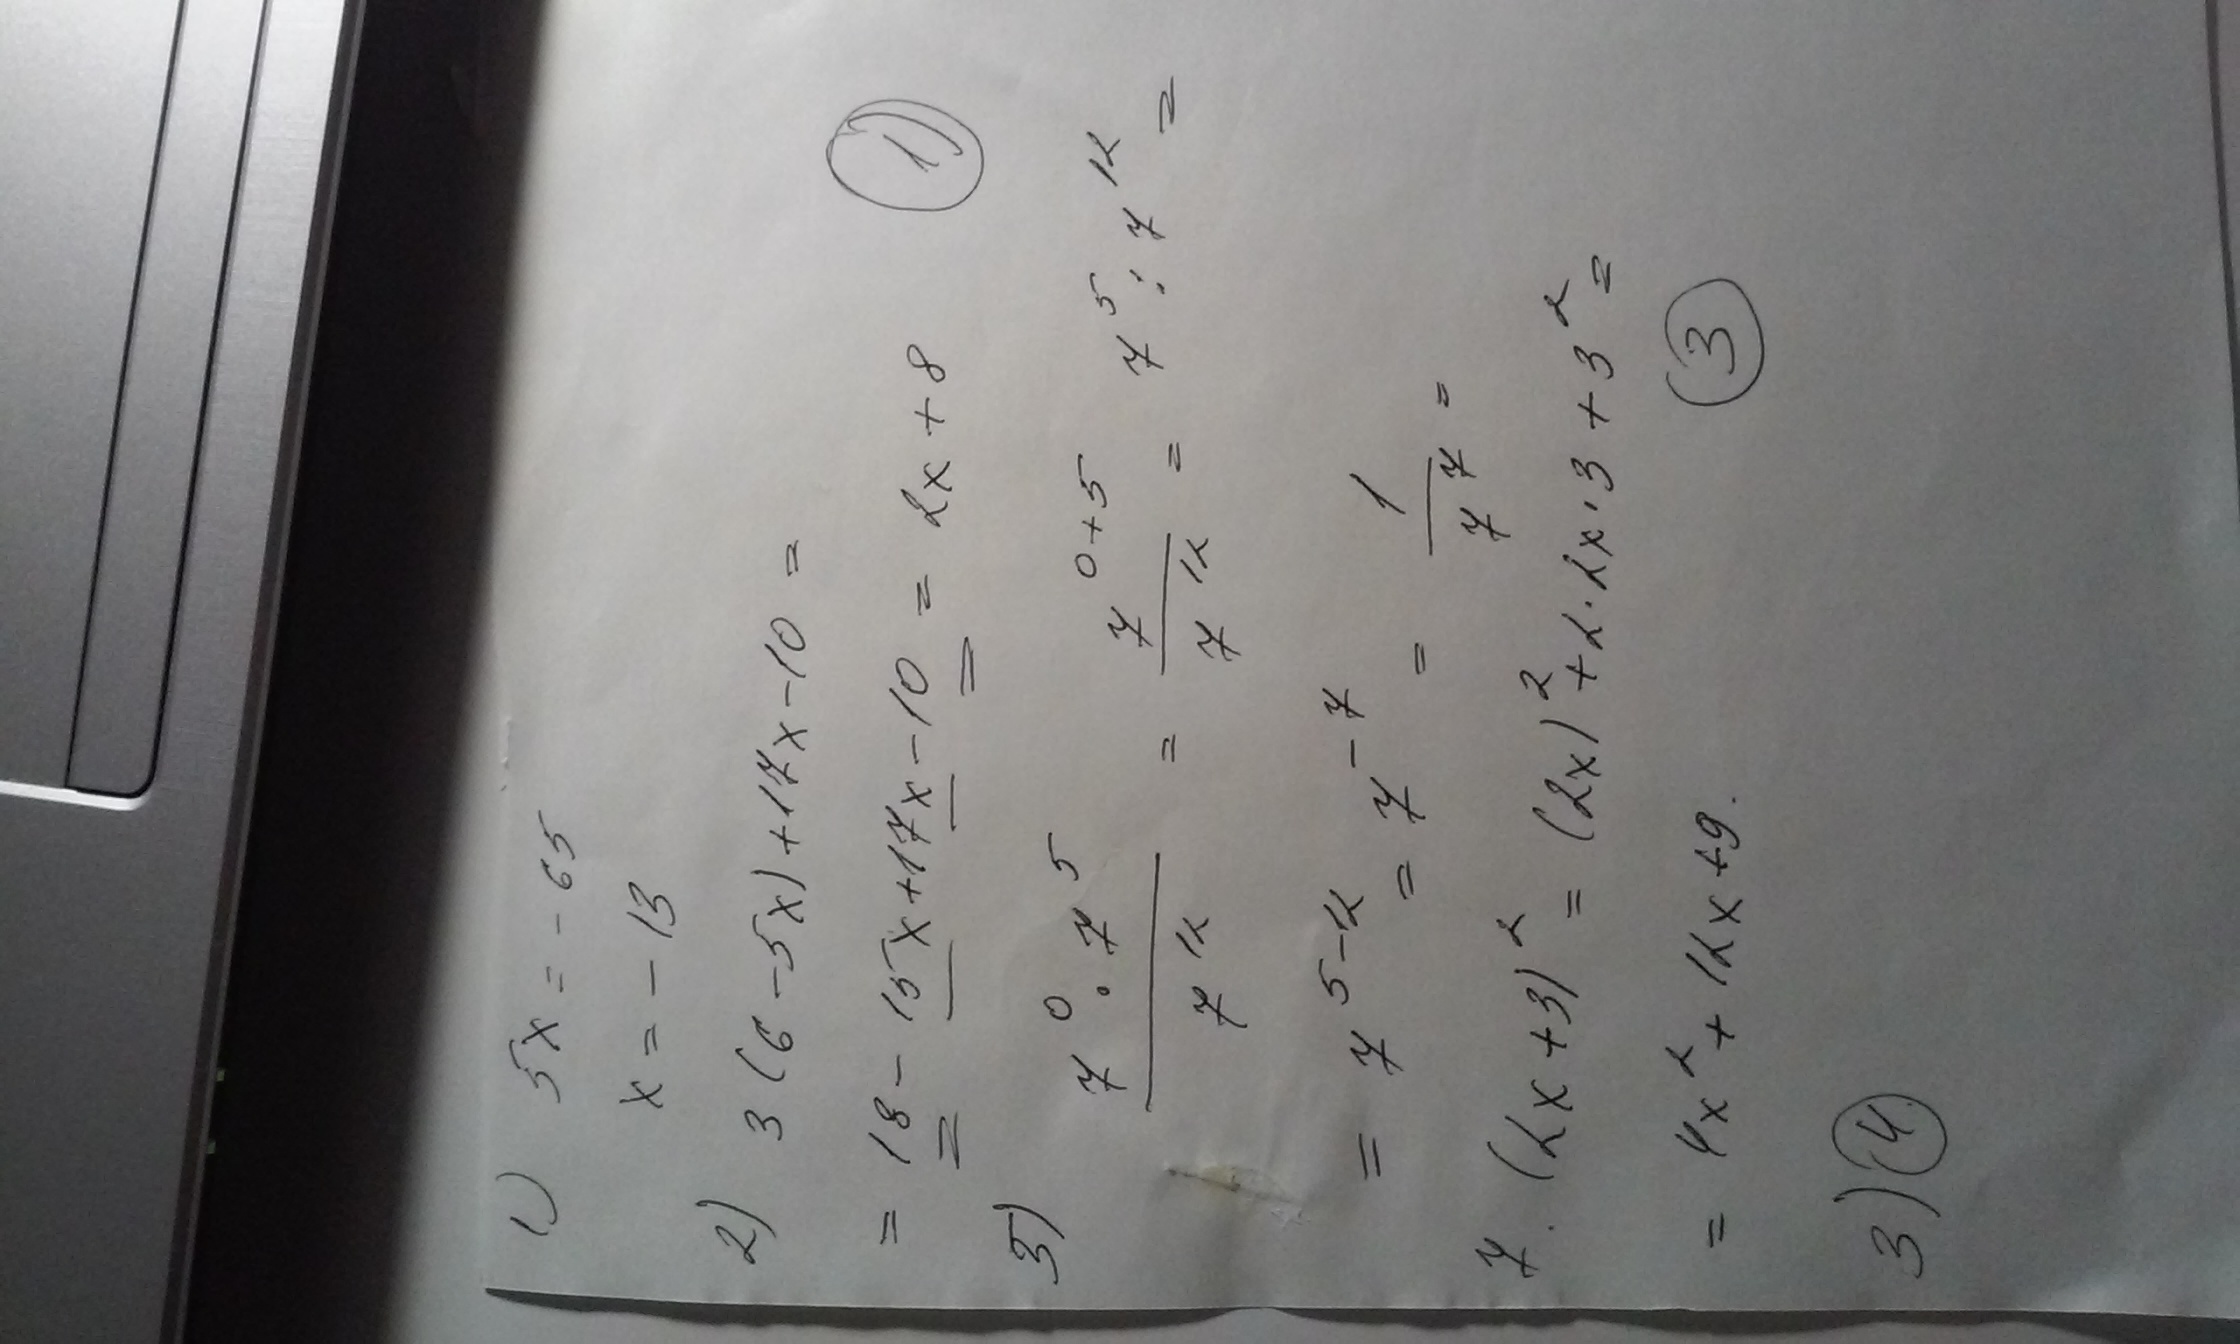 1) 5x = -65
x = -13
2) 3(6-5x)+17x-10 =
= 18-15x+17x-10 = 2x+8 (1)
5) 7^0 · 7^5 / 7^12 = 7^(0+5) / 7^12 = 7^5 : 7^12 =
= 7^(5-12) = 7^(-7) = 1 / 7^7 =
7. (2x+3)^2 = (2x)^2+2·2x·3+3^2 =
= 4x^2+12x+9. (3)
3) (4)